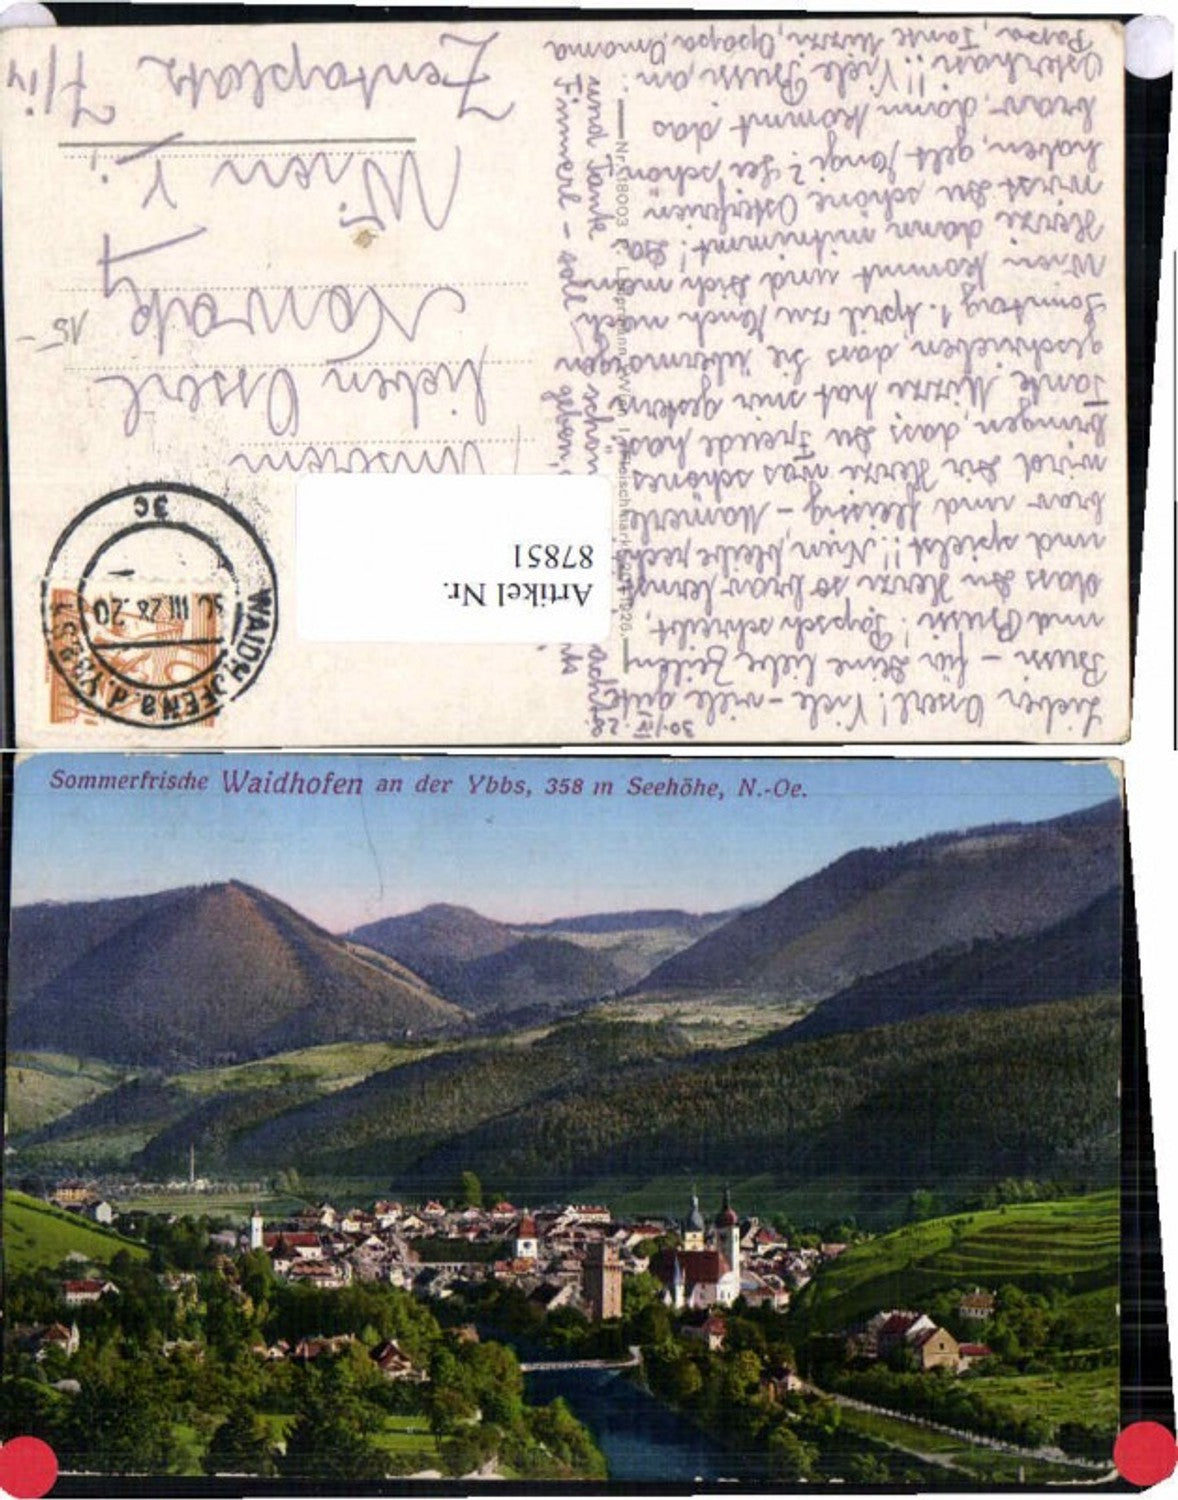 30./III.
Lieber Osserl! Viele - viele gute
Bussi - für Deine liebe Zeilen,
und Bussi! Papsch schreibt,
dass Du Herze so brav lernst
und spielst!! Nun, bleibe recht
brav und fleissig - Mamerle
wird Dir Herze was schönes
bringen dass Du Freude hast.
Tante Mizzi hat mir gestern
geschrieben, dass Sie übermorgen
Sonntag 1. April zu Euch nach
Wien kommt und Dich mein
Herze dann mitnimmt! Da
wirst Du schöne Osterferien
haben, gelt Jungi? Sei schön
brav, dann kommt das
Osterhasi!! Viele Bussi, an
Papa, Tante Mizzi, Opapa, Omama
und Tante
Finnerl - soll
schön
Nr. 18003
Unserem
lieben Osserl
Nowak
Wien V.
Zentaplatz
7/IV
15-
WAIDHOFEN a.d. YBBS
30.III.28.20
3c
Artikel Nr.
87851
Sommerfrische Waidhofen an der Ybbs, 358 m Seehöhe, N.-Oe.